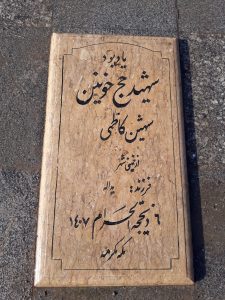 یادبود
شهید حج خونین
شهین کاظمی
از خمینی شهر
فرزند: یداله
۶ ذیحجه الحرام ۱۴۰۷
مکه مکرمه